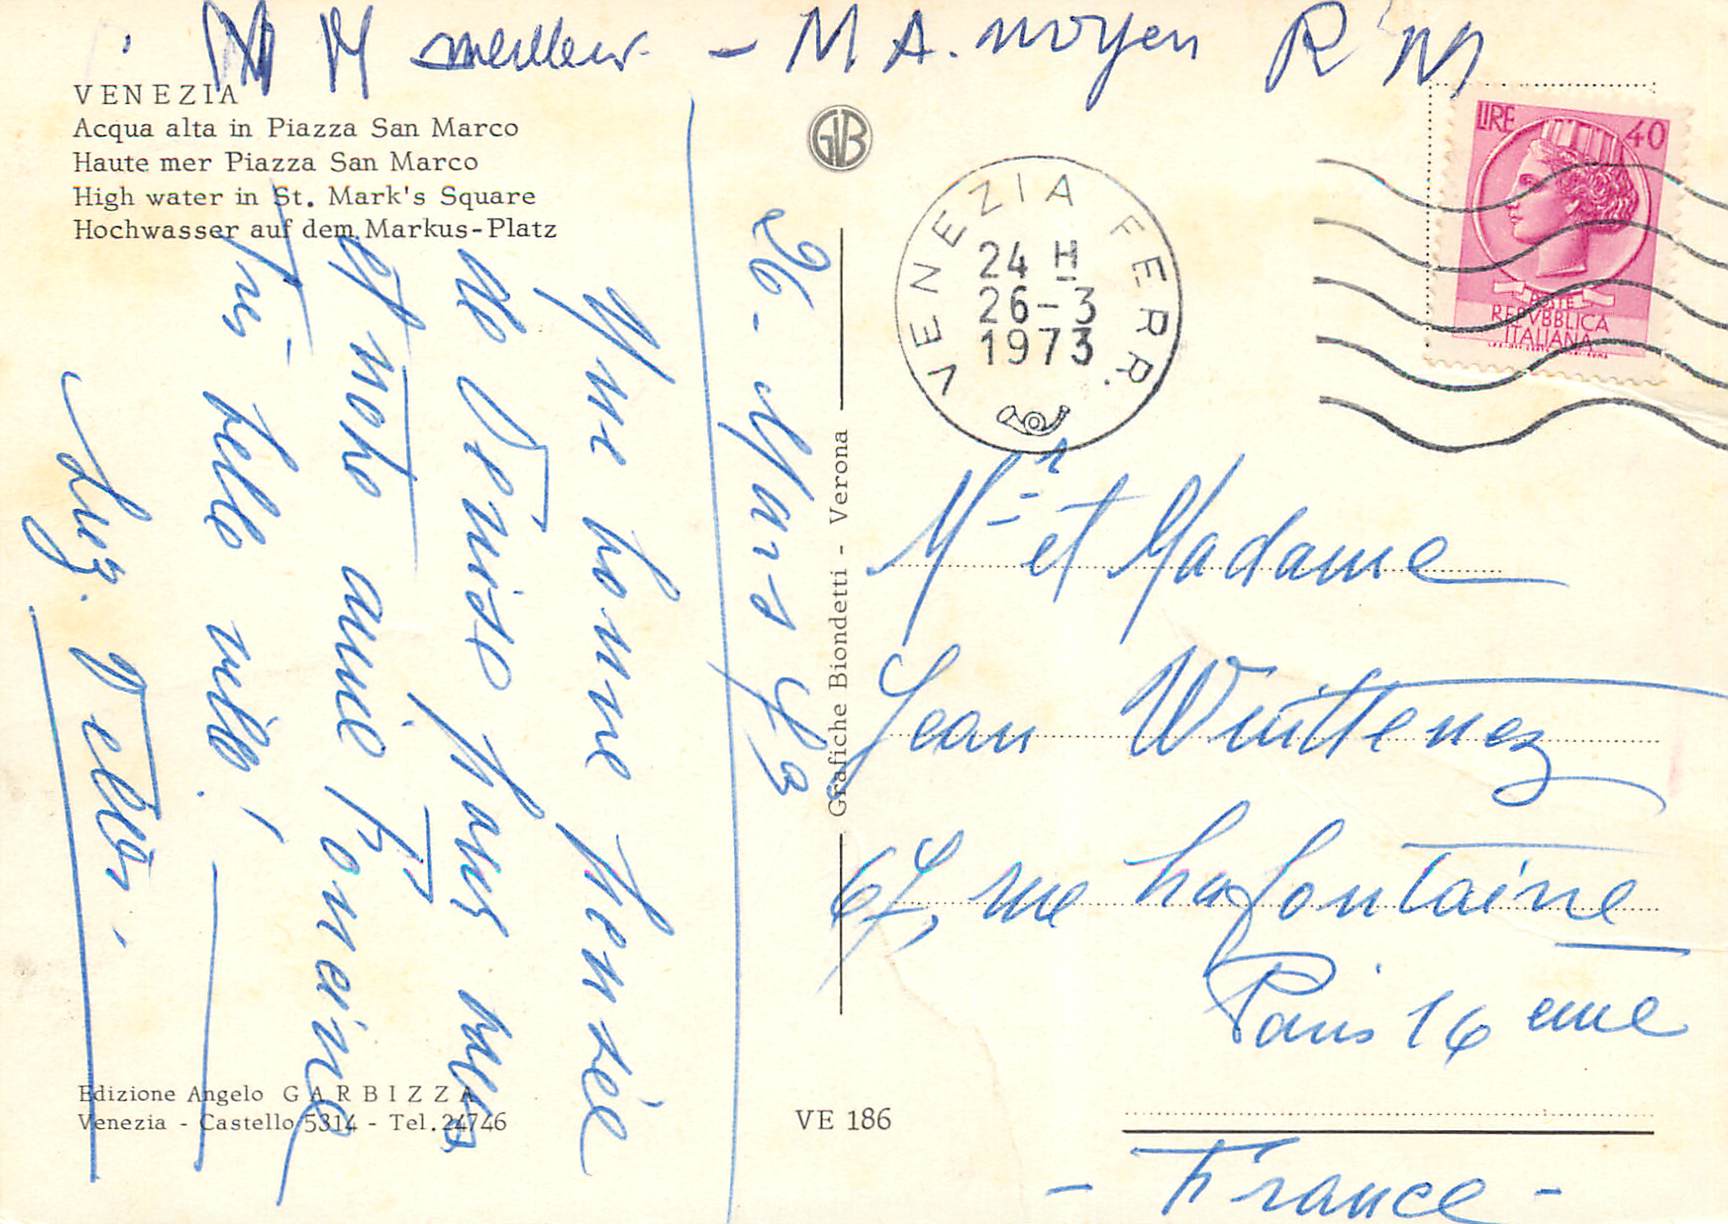 M meilleur - M A. moyen R M
VENEZIA
Acqua alta in Piazza San Marco
Haute mer Piazza San Marco
High water in St. Mark's Square
Hochwasser auf dem Markus-Platz
26 - Mars 73
Une bonne pensée
de Venise pour vous
et notre amie
Très belle ville !
Edizione Angelo GARBIZZA
Venezia - Castello 5314 - Tel. 24746
GB
Grafiche Biondetti - Verona
VE 186
VENEZIA FERR.
24 H
26-3
1973
LIRE 40
POSTE
REPVBBLICA
ITALIANA
Mr et Madame
Jean
67, rue La Fontaine
Paris 16 eme
- France -